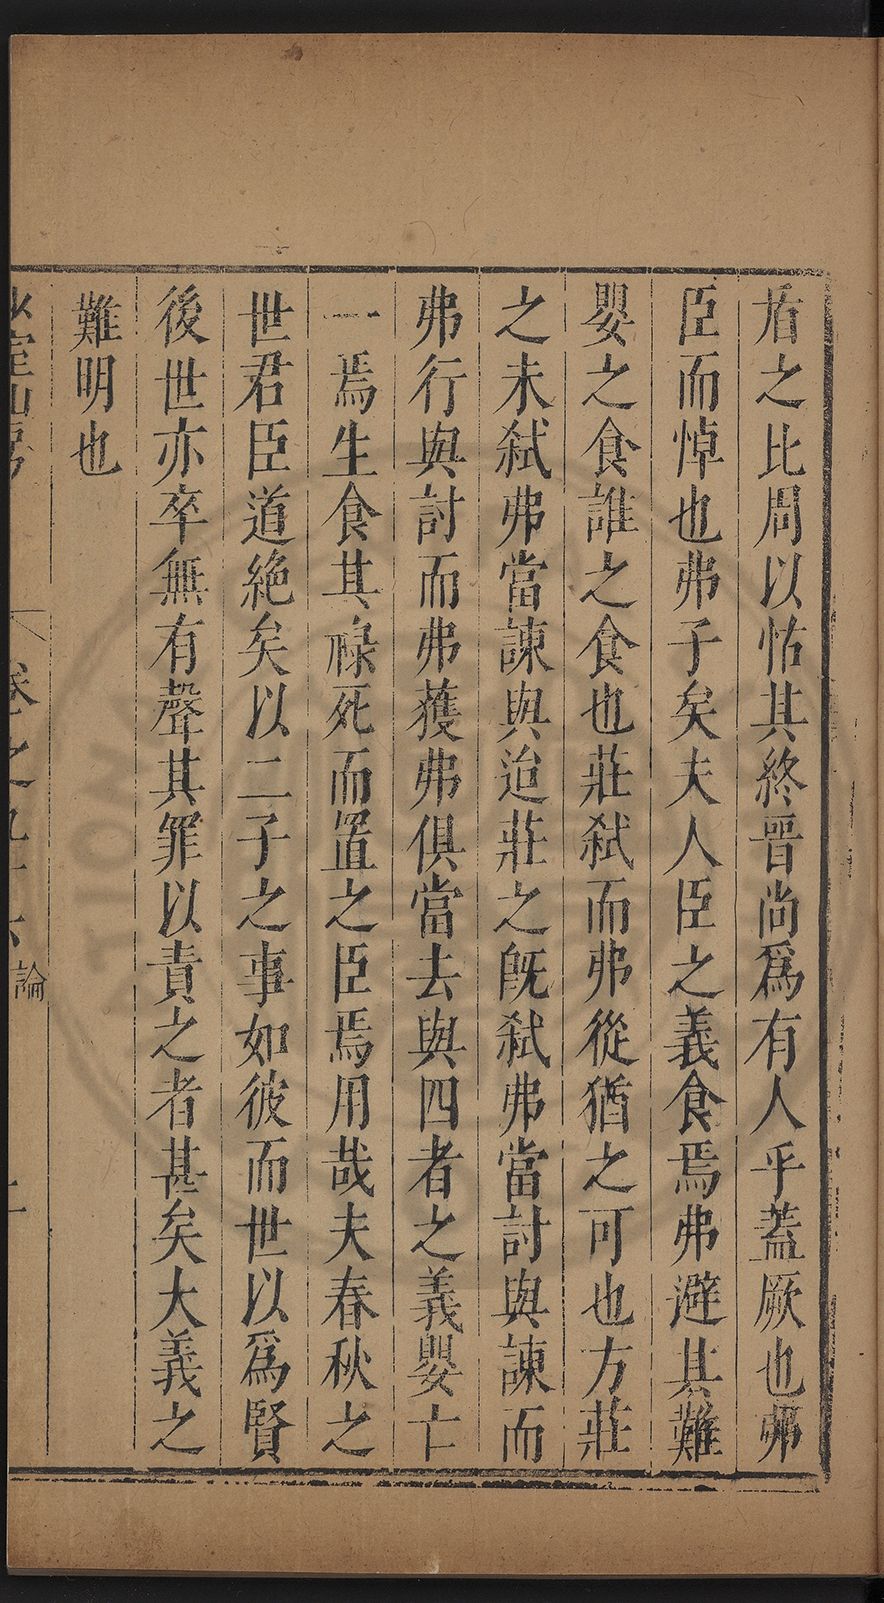 盾之比周以怙其終晉尚爲有人乎蓋厥也弗
臣而悼也弗子矣夫人臣之義食焉弗避其難
嬰之食誰之食也莊弑而弗從猶之可也方莊
之未弑弗當諫與迨莊之既弑弗當討與諫而
弗行與討而弗獲弗俱當去與四者之義嬰亡
一焉生食其祿死而置之臣焉用哉夫春秋之
世君臣道絶矣以二子之事如彼而世以爲賢
後世亦卒無有聲其罪以責之者甚矣大義之
難明也
少室山房 卷之九十六 論 二